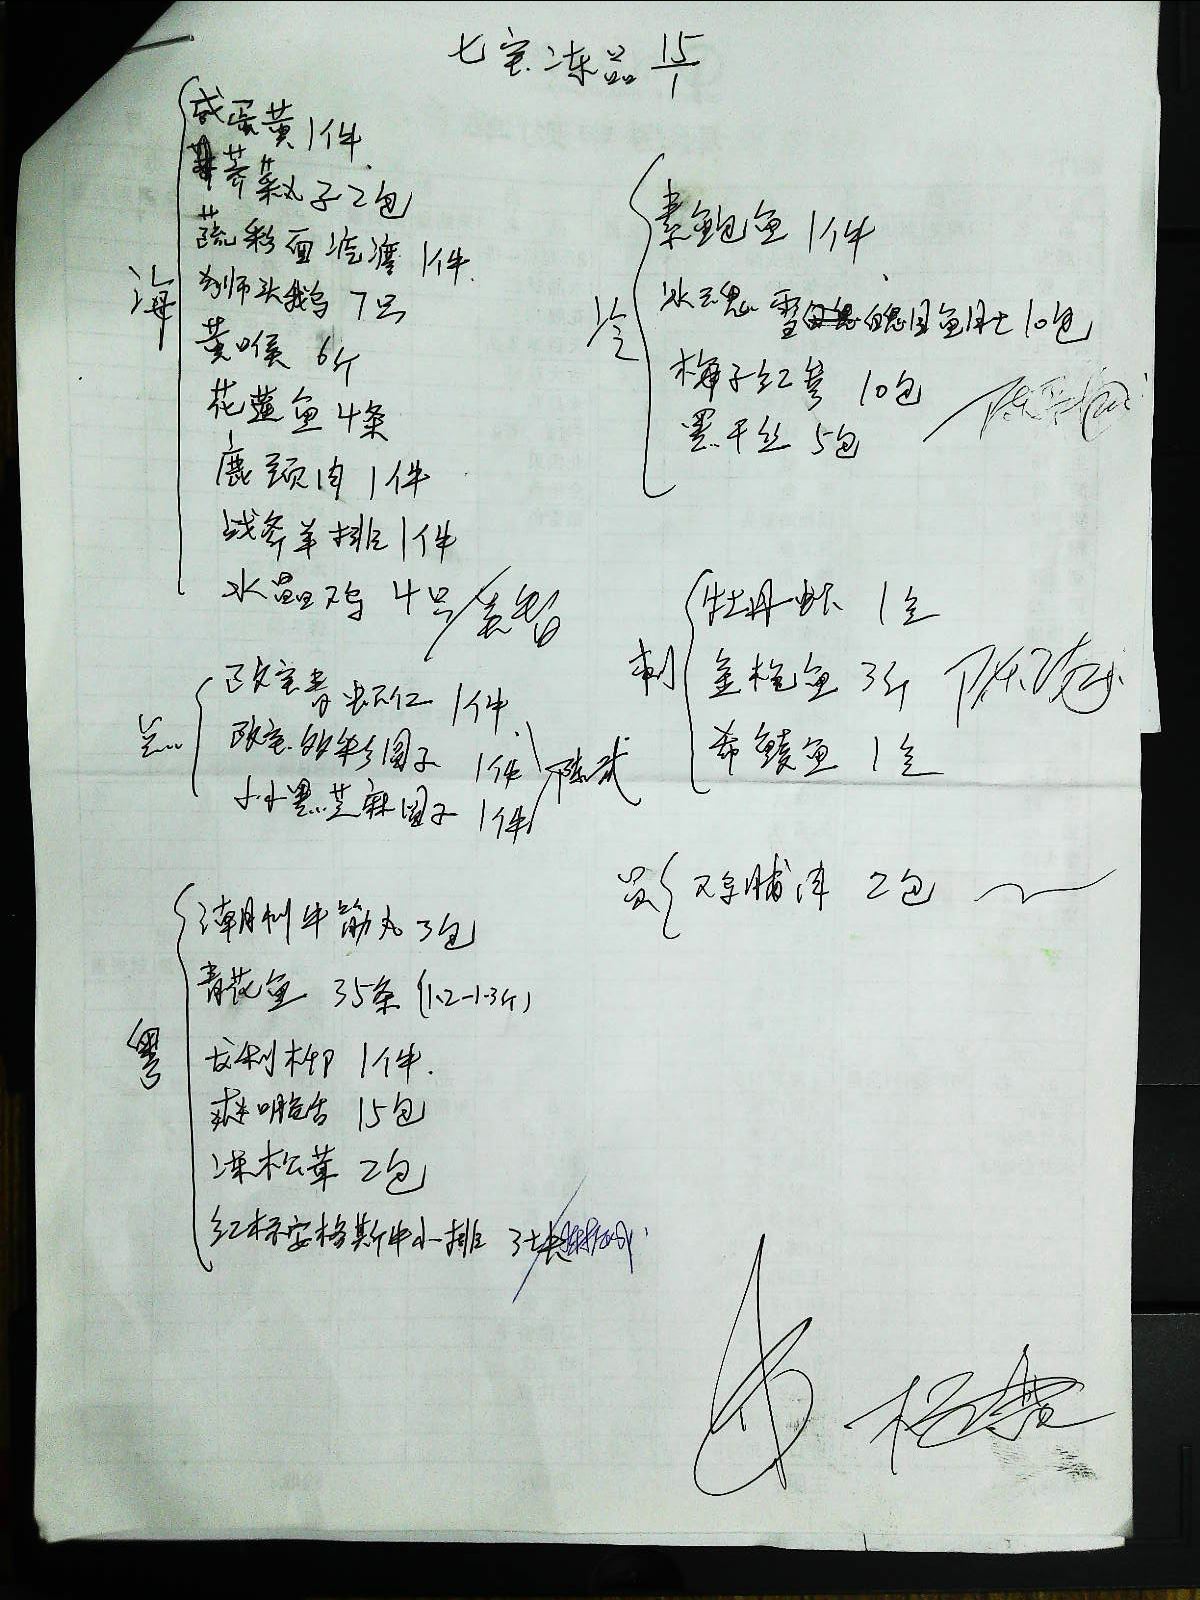 七宝冻品 15/1
海
咸蛋黄 1件
荠菜丸子 2包
蔬彩面疙瘩 1件
狮头鹅 7只
黄喉 6斤
花莲鱼 4条
鹿颈肉 1件
战斧羊排 1件
水晶鸡 4只
点
改宝青虾仁 1件
改宝 彩团子 1件
小小黑芝麻团子 1件
粤
潮州牛筋丸 3包
青花鱼 35条 (1.2-1.3斤)
龙利柳 1件
15包
冻松茸 2包
红标安格斯牛小排 3块
冷
素鲍鱼 1件
10包
梅子红薯 10包
墨干丝 5包
刺
牡丹虾 1盒
金枪鱼 3斤
希鲮鱼 1盒
员
2包